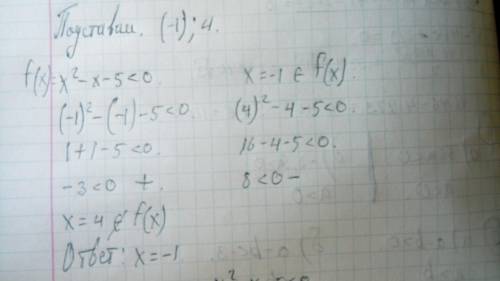 Подставим. (-1); 4.
f(x)=x²-x-5<0. x=-1 ∈ f(x).
(-1)²-(-1)-5<0. (4)²-4-5<0.
1+1-5<0. 16-4-5<0.
-3<0 +. 8<0 -
x=4 ∉ f(x)
Ответ: x=-1.